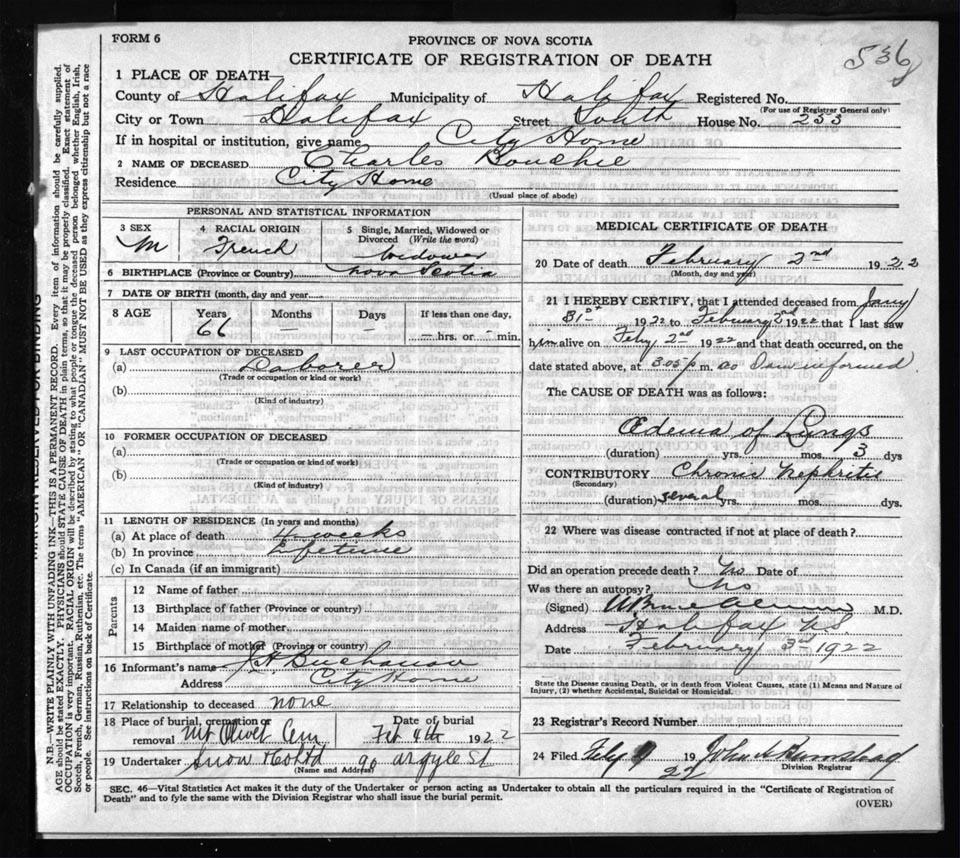 FORM 6
PROVINCE OF NOVA SCOTIA
CERTIFICATE OF REGISTRATION OF DEATH
536
1 PLACE OF DEATH—
County of Halifax Municipality of Halifax Registered No.
(For use of Registrar General only)
City or Town Halifax Street South House No. 233
If in hospital or institution, give name City Home
2 NAME OF DECEASED Charles Boudhie
Residence City Home
(Usual place of abode)
PERSONAL AND STATISTICAL INFORMATION
3 SEX M
4 RACIAL ORIGIN French
5 Single, Married, Widowed or Divorced (Write the word) Widower
6 BIRTHPLACE (Province or Country) Nova Scotia
7 DATE OF BIRTH (month, day and year)
8 AGE Years 66 Months — Days — If less than one day, — hrs. or — min.
9 LAST OCCUPATION OF DECEASED
(a) Laborer
(Trade or occupation or kind or work)
(b)
(Kind of industry)
10 FORMER OCCUPATION OF DECEASED
(a)
(Trade or occupation or kind of work)
(b)
(Kind of industry)
11 LENGTH OF RESIDENCE (In years and months)
(a) At place of death 4 weeks
(b) In province Lifetime
(c) In Canada (if an immigrant)
Parents
12 Name of father
13 Birthplace of father (Province or country)
14 Maiden name of mother
15 Birthplace of mother (Province or country)
16 Informant's name J H Buchanan
Address City Home
17 Relationship to deceased none
18 Place of burial, cremation or removal Mt Olivet Cem Date of burial Feb 4th 1922
19 Undertaker Snow & Co Ltd 90 Argyle St
(Name and Address)
MEDICAL CERTIFICATE OF DEATH
20 Date of death February 2nd 1922
(Month, day and year)
21 I HEREBY CERTIFY, that I attended deceased from Jany
31st 1922 to February 2nd 1922 that I last saw
him alive on Feby 2nd 1922 and that death occurred, on the
date stated above, at 3:05 p m. as I am informed
The CAUSE OF DEATH was as follows:
Œdema of Lungs
(duration) yrs. mos. 3 dys
CONTRIBUTORY Chronic Nephritis
(Secondary)
(duration) several yrs. mos. dys.
22 Where was disease contracted if not at place of death?
Did an operation precede death? No Date of
Was there an autopsy? No
(Signed) M.D.
Address Halifax N.S.
Date February 3rd 1922
State the Disease causing Death, or in death from Violent Causes, state (1) Means and Nature of
Injury, (2) whether Accidental, Suicidal or Homicidal.
23 Registrar's Record Number
24 Filed Feby 19 22 John A
Division Registrar
SEC. 46—Vital Statistics Act makes it the duty of the Undertaker or person acting as Undertaker to obtain all the particulars required in the "Certificate of Registration of
Death" and to fyle the same with the Division Registrar who shall issue the burial permit.
(OVER)
MARGIN RESERVED FOR BINDING
N.B.—WRITE PLAINLY WITH UNFADING INK—THIS IS A PERMANENT RECORD. Every item of information should be carefully supplied.
AGE should be stated EXACTLY. PHYSICIANS should STATE CAUSE OF DEATH in plain terms, so that it may be properly classified. Exact statement of
OCCUPATION is very important. RACIAL ORIGIN will be described by stating to what people or tongue the deceased person belonged whether English, Irish,
Scotch, French, German, Russian, Ruthenian, etc. The terms "AMERICAN" OR "CANADIAN" MUST NOT BE USED as they express citizenship but not a race
or people. See instructions on back of Certificate.